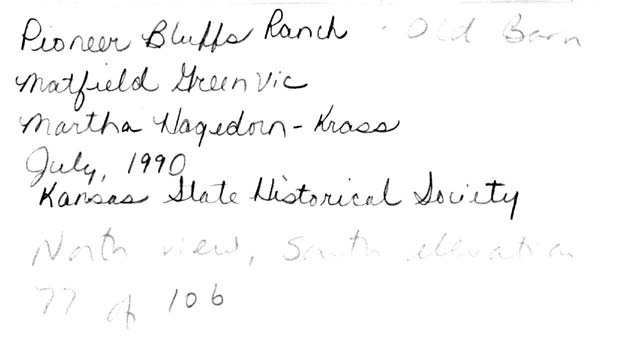 Pioneer Bluffs Ranch - Old Barn
Matfield Green Vic
Martha Hagedorn-Krass
July, 1990
Kansas State Historical Society
North view, South elevation
77 of 106